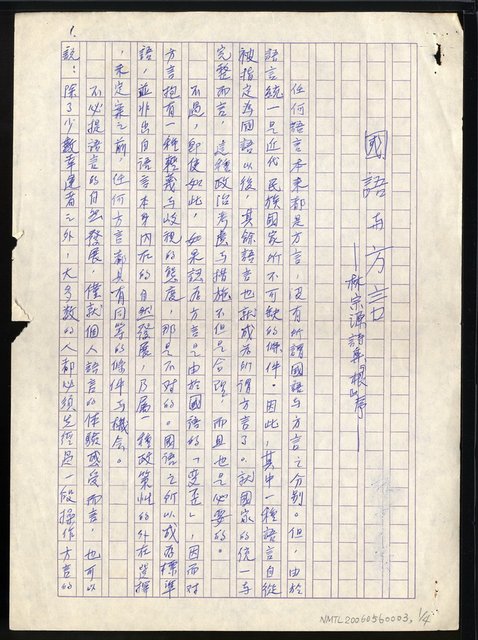 1.
國語与方言
——林宗源詩集「根」序——
任何語言本來都是方言，沒有所謂國語与方言之分別。但，由於
語言統一是近代民族國家所不可缺的條件。因此，其中一種語言自從
被指定為國語以後，其餘語言也就成為所謂方言了。就國家的統一与
完整而言，這種政治考慮与措施不但是合理，而且也是必要的。
不過，即使如此，如果認為方言是由於國語的「變歪」，因而對
方言抱有一種輕蔑与歧視的態度，那是不对的。國語之所以成為標準
語，並非出自語言本身內在的自然發展，乃屬一種政策性的外在選擇
，未定案之前，任何方言都具有同等的條件与機会。
不必提語言的自然發展，僅就個人語言的体驗感受而言，也可以
說：除了少數幸運者之外，大多數的人都必須先經過一段操作方言的
NMTL20060560003, 1/4